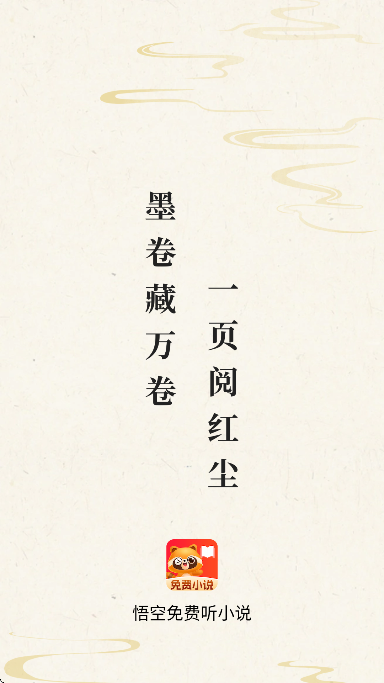 墨卷藏万卷
一页阅红尘
免费小说
悟空免费听小说